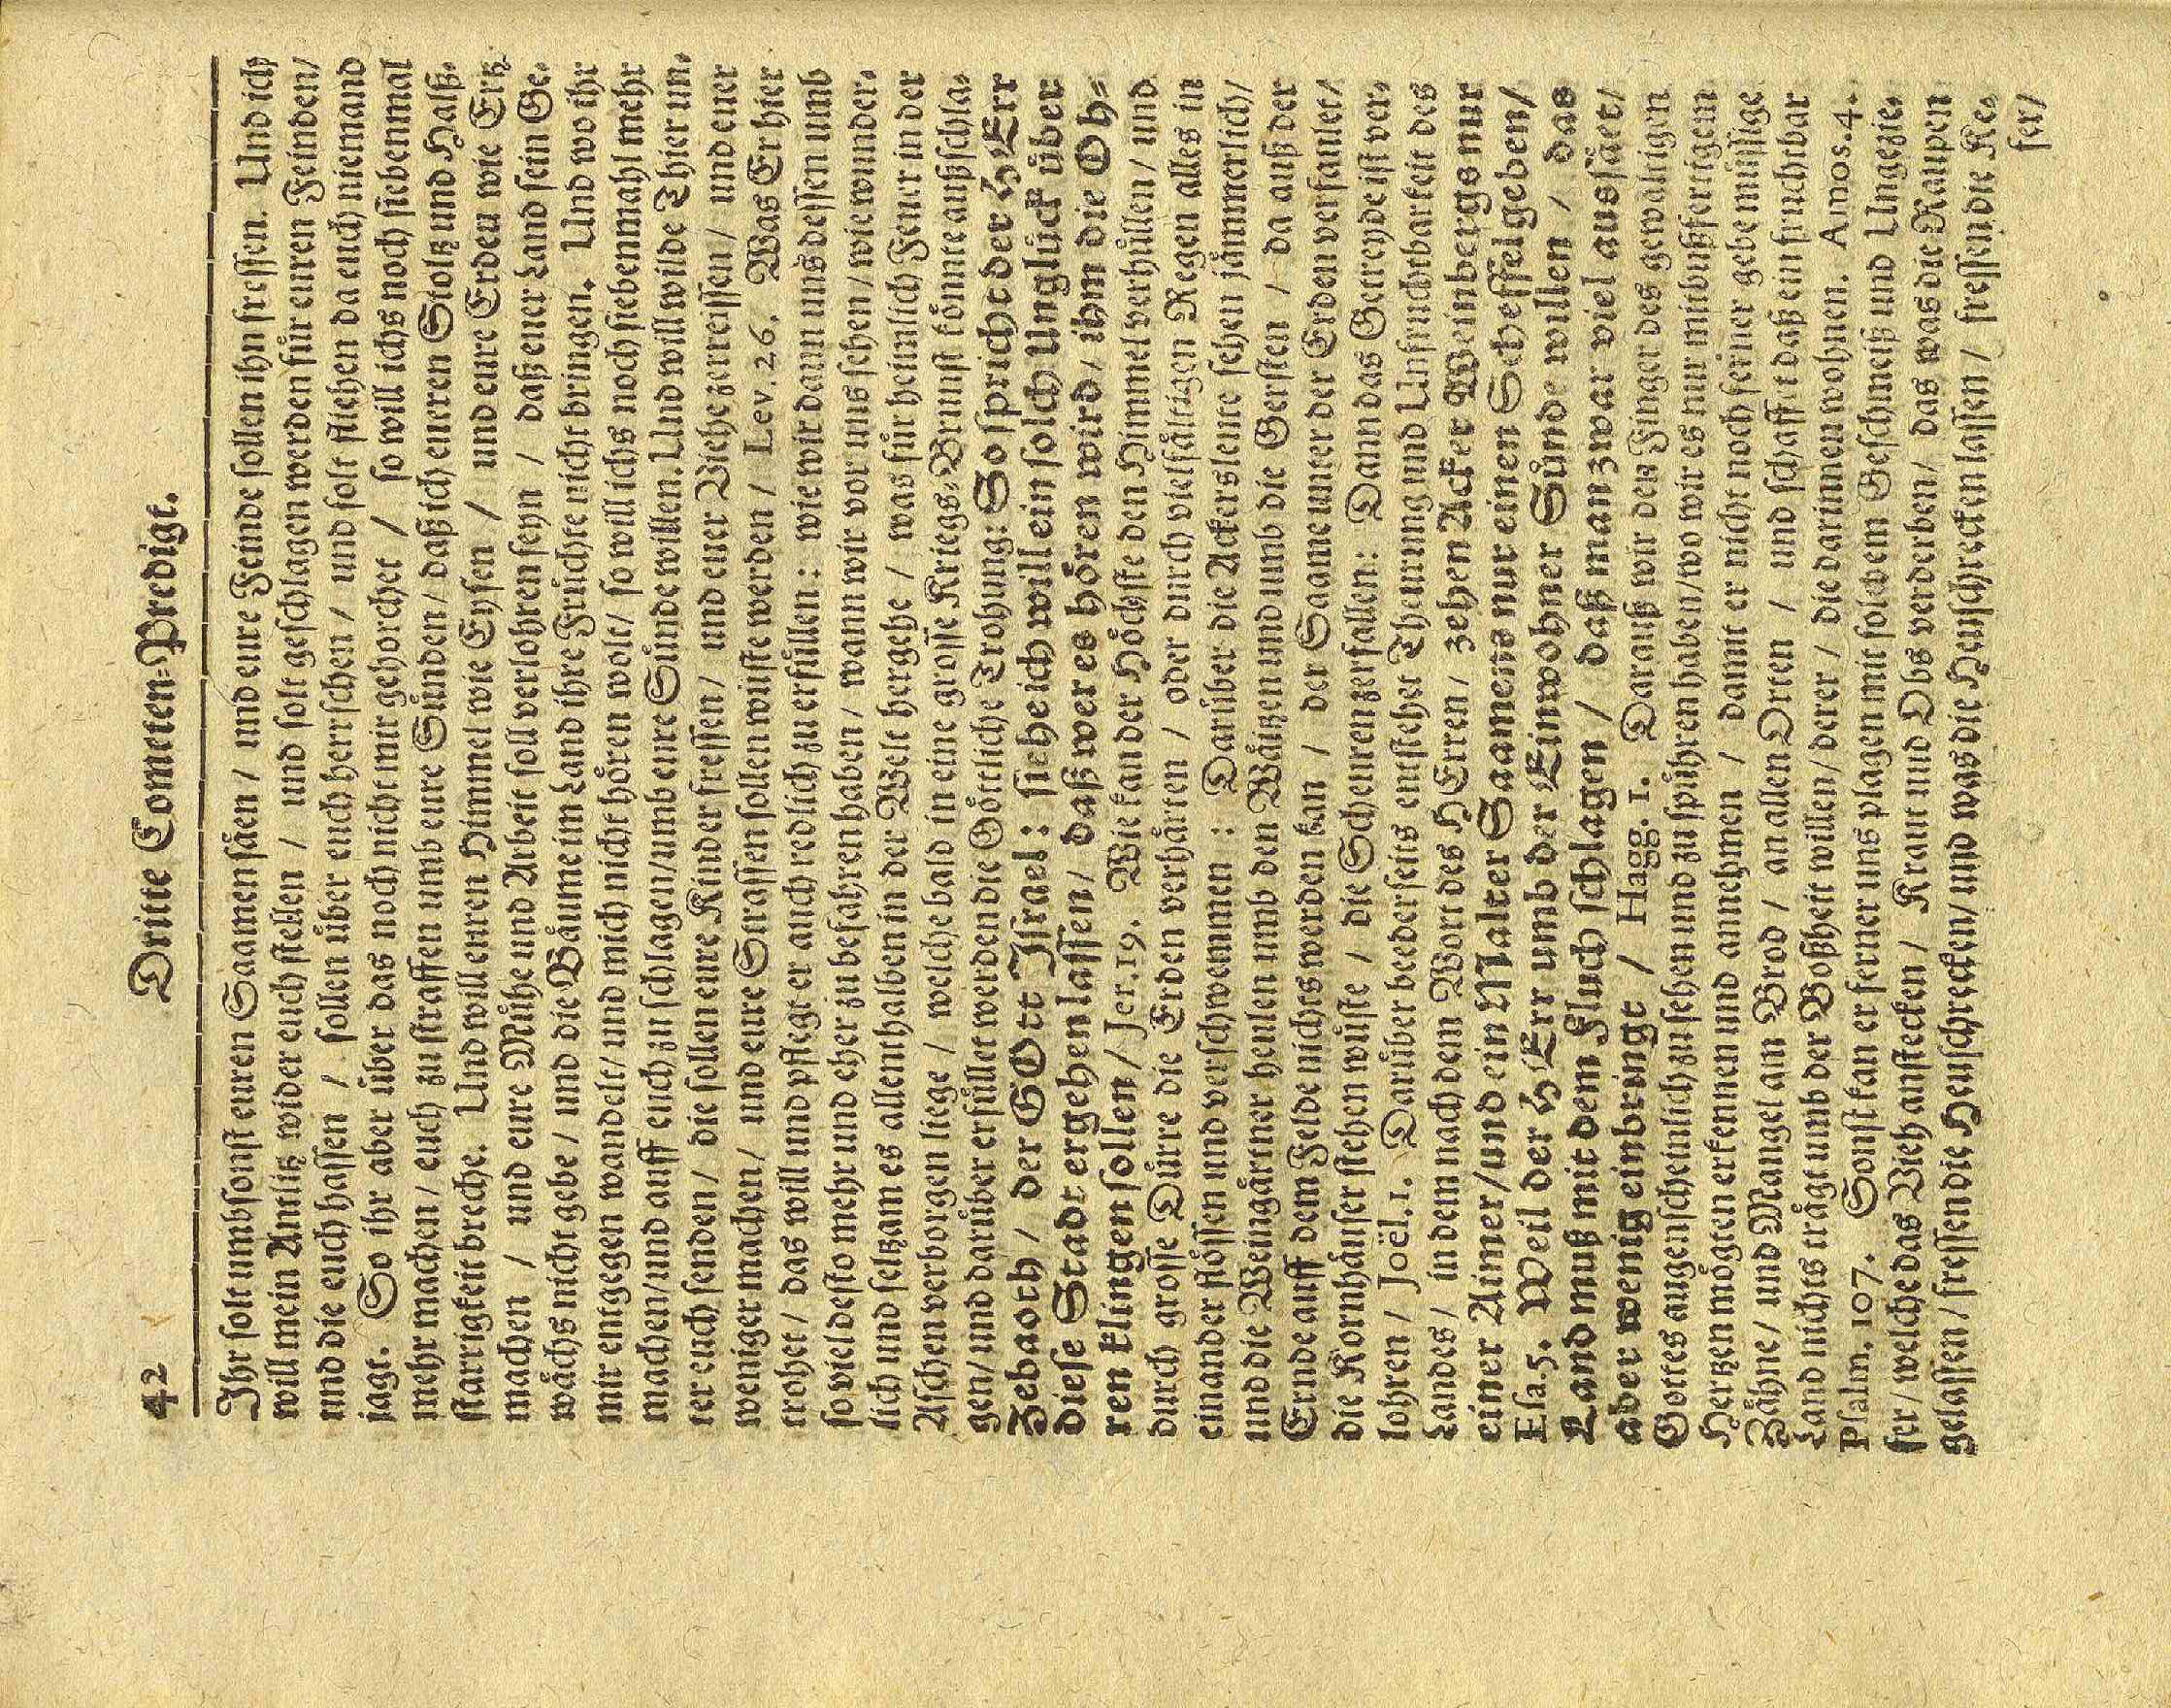 42 Dritte Cometen-Predigt.
Ihr solt umbsonst euren Saamen säen / und eure Feinde sollen ihn fressen. Und ich
will mein Antlitz wider euch stellen / und solt geschlagen werden für euren Feinden/
und die euch hassen / sollen über euch herrschen / und solt fliehen da euch niemand
jagt. So ihr aber über das noch nicht mir gehorchet / so will ichs noch siebenmal
mehr machen / euch zu straffen umb eure Sünden / daß ich eueren Stoltz und Halß-
starrigkeit breche. Und will euren Himmel wie Eysen / und eure Erden wie Ertz
machen / und eure Mühe und Arbeit soll verlohren seyn / daß euer Land sein Ge-
wächs nicht gebe / und die Bäume im Land ihre Früchte nicht bringen. Und wo ihr
mir entgegen wandelt/ und mich nicht hören wolt/ so will ichs noch siebenmahl mehr
machen/und auff euch zu schlagen/umb eure Sünde willen. Und will wilde Thier un-
ter euch senden / die sollen eure Kinder fressen / und euer Viehe zerreissen / und euer
weniger machen/ und eure Strassen sollen wüste werden / Lev. 26. Was Er hier
trohet/ das will und pflegt er auch redlich zu erfüllen: wie wir dann uns dessen umb
so viel desto mehr und eher zu befahren haben/ wann wir vor uns sehen / wie wunder-
lich und seltzam es allenthalben in der Welt hergehe / was für heimlich Feuer in der
Aschen verborgen liege / welche bald in eine grosse Kriegs-Brunst könnte außschla-
gen/ und darüber erfüllet werden die Göttliche Trohung: So spricht der HErr
Zebaoth / der GOtt Israel: siehe ich will ein solch Unglück über
diese Stadt ergehen lassen / daß wer es hören wird / ihm die Oh-
ren klingen sollen / Jer. 19. Wie kan der Höchste den Himmel verhüllen / und
durch grosse Dürre die Erden verhärten / oder durch vielfältigen Regen alles in
einander flössen und verschwemmen: Darüber die Ackersleute sehen jämmerlich/
und die Weingärtner heulen umb den Wäitzen und umb die Gersten / da auß der
Ernde auff dem Felde nichts werden kan / der Saame unter der Erden verfaulet/
die Kornhäuser stehen wüste / die Scheuren zerfallen: Dann das Getreyde ist ver-
lohren / Joël. 1. Darüber beederseits entstehet Theurung und Unfruchtbarkeit des
Landes/ in dem nach dem Wort des HErren / zehen Acker Weinbergs nur
einer Aimer/und ein Malter Saamens nur einen Scheffel geben/
Esa. 5. Weil der HErr umb der Einwohner Sünde willen / das
Land muß mit dem Fluch schlagen / daß man zwar viel aussäet/
aber wenig einbringt / Hagg. 1. Darauß wir den Finger des gewaltigen
Gottes augenscheinlich zu sehen und zu spühren haben/wo wir es nur mit bußfertigen
Hertzen mögten erkennen und annehmen / damit er nicht noch ferner gebe müssige
Zähne/ und Mangel am Brod / an allen Orten / und schafft daß ein fruchtbar
Land nichts trägt umb der Boßheit willen/ derer / die darinnen wohnen. Amos. 4.
Psalm. 107. Sonst kan er ferner uns plagen mit solchem Geschmeiß und Ungezie-
fer/ welche das Vieh anstecken / Kraut und Obs verderben/ das was die Raupen
gelassen/ fressen die Heuschrecken/ und was die Heuschrecken lassen / fressen die Ke-
fer/